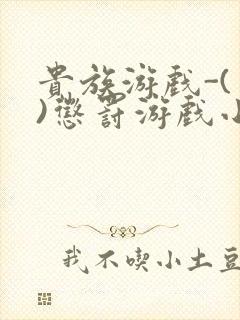 貴族游戲-(
)懲罰游戲小
我不喫小土豆